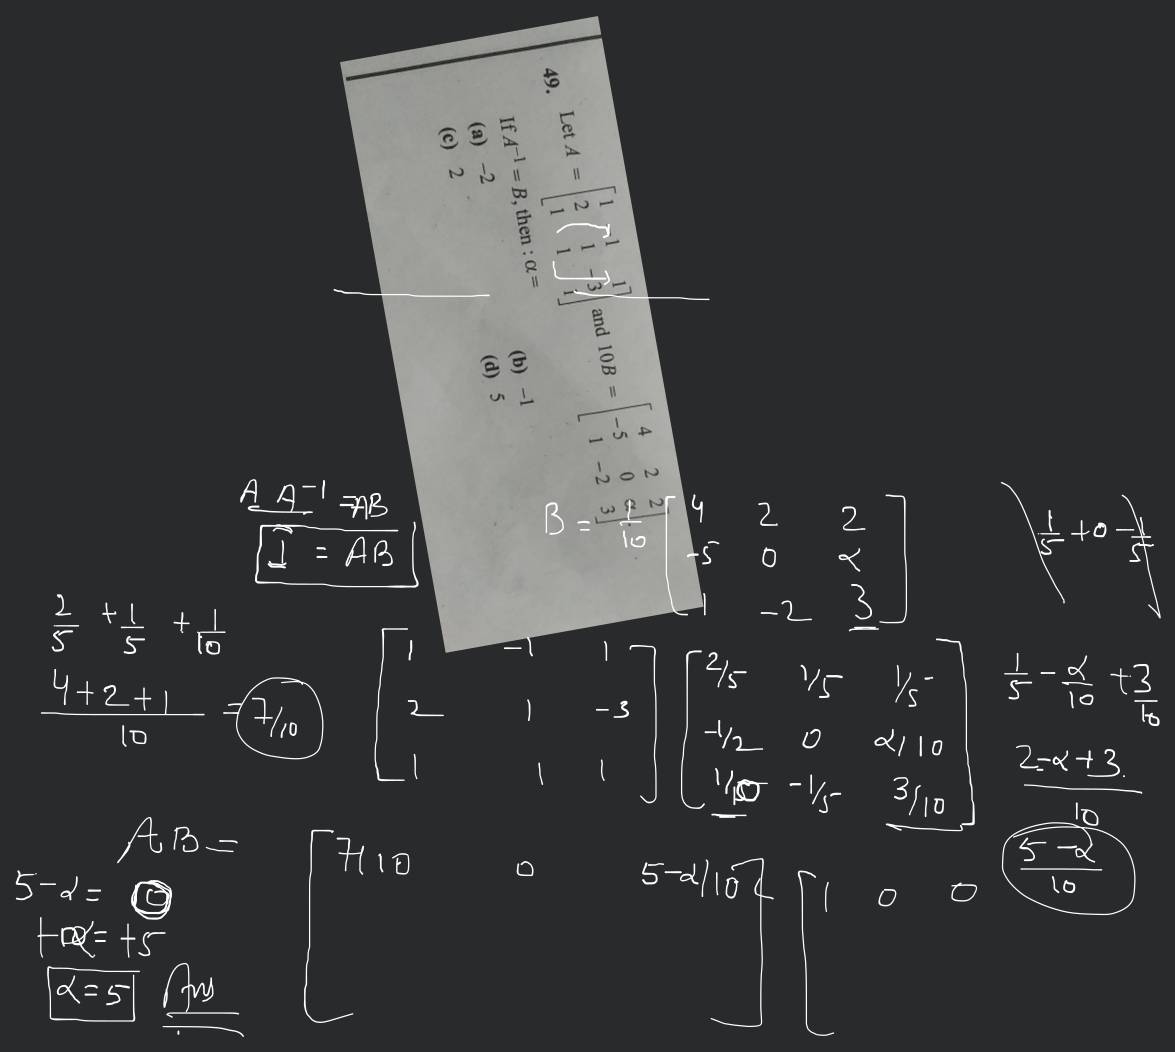 49. Let A = [1 -1 1] and 10B = [4 2 2]
[2 1 -3] [-5 0 α]
[1 1 1] [1 -2 3]
If A⁻¹ = B, then : α =
(a) -2 (b) -1
(c) 2 (d) 5
A A⁻¹ = AB
I = AB
B = 1/10 [4 2 2]
[-5 0 α]
[1 -2 3]
1/5 + 0 - 1/5
2/5 + 1/5 + 1/10
4+2+1/10 = 7/10
[1 -1 1] [2/5 1/5 1/5]
[2 1 -3] [-1/2 0 α/10]
[1 1 1] [1/10 -1/5 3/10]
1/5 - α/10 + 3/10
2-α+3/10
5-α/10
AB = [7/10 0 5-α/10] [1 0 0
5-α = 0
+α = +5
α = 5 Ans